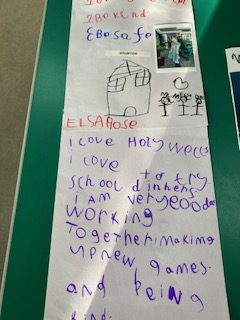 2BeKind
3Besafe
ELSARose
i Love Holywells
i Love to try
school dinners
i am very good at
working
Together. making
up new games.
and being
kind.